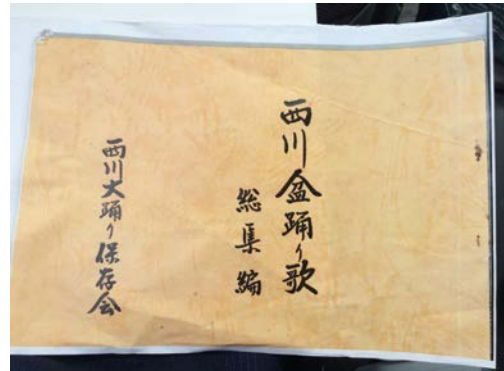 西川盆踊り歌
総集編
西川大踊り保存会